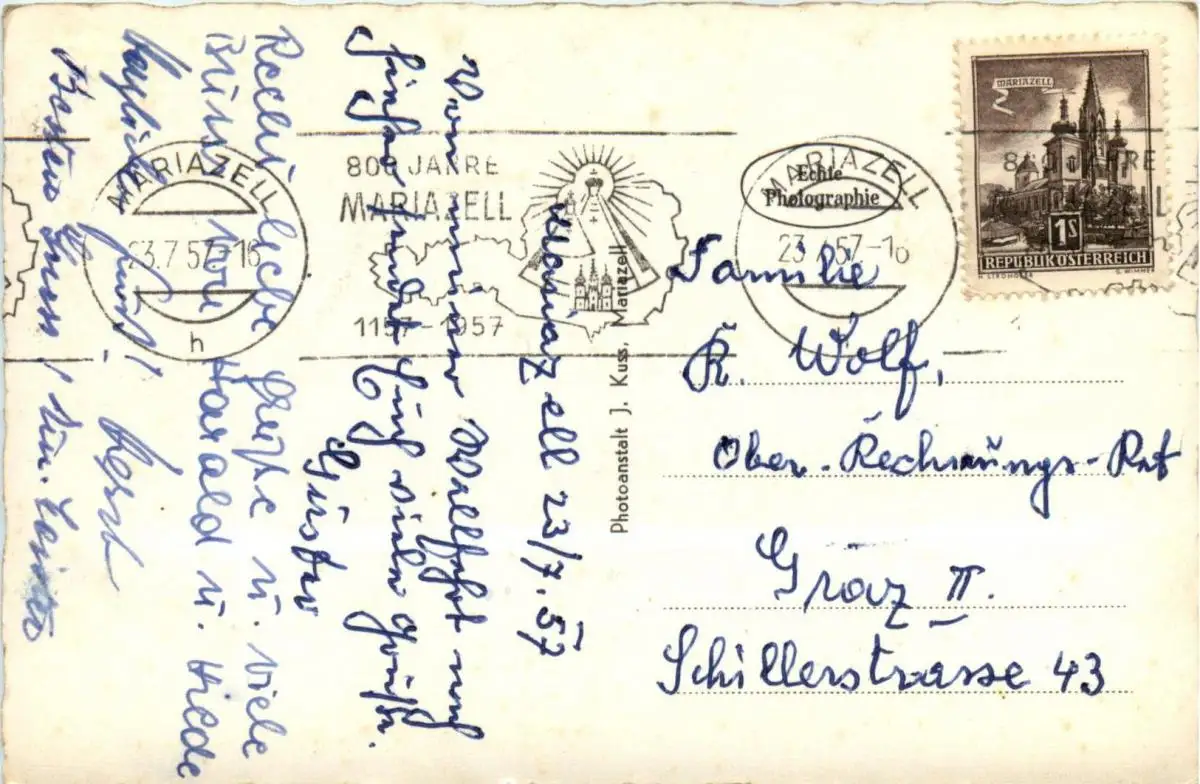 Mariazell 23/7.57
Von unserer Wallfahrt nach
hier sendet Euch viele Grüße.
Gustav
Recht liebe Grüße u. viele
Bussi Ihre Harald u. Hiede
herzlich grüßt
Besten Gruss!
MARIAZELL
23.7.57-16
h
800 JAHRE
MARIAZELL
1157-1957
MARIAZELL
23.7.57-16
Echte
Photographie
800 JAHRE
MARIAZELL
1S
REPUBLIK ÖSTERREICH
G. WIMMER
Photoanstalt J. Kuss, Mariazell
Familie
R. Wolf,
Ober-Rechnungs-Rat
Graz II.
Schillerstrasse 43